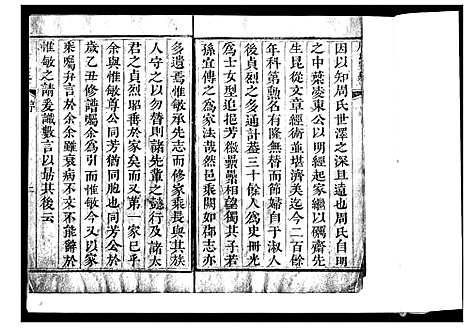 因以知周氏世澤之深且遠也周氏自明
之中葉凌東公以明經起家繼以礪齋先
生昆從文章經術並堪濟美迄今二百餘
年科第勳名有隆無替而節婦自于淑人
後貞烈之多通計蓋三十餘人為史冊光
為士女型追挹芳徽纍纍相望獨其子若
孫宣傳之為家法哉然而邑乘闕如郡志亦
多遺焉惟敏承先志而修家乘長與其族
人守之以勿替則諸先輩之懿行及諸太
君之貞烈耶垂於家矣而又第一家已乎
余與惟敏尊公同芳猶同胞也同芳於
歲乙丑修譜囑余為引而惟敏今又以家
乘囑弁言於余余雖衰病不文不能辭於
惟敏之請爰識數言以勗其後云
序